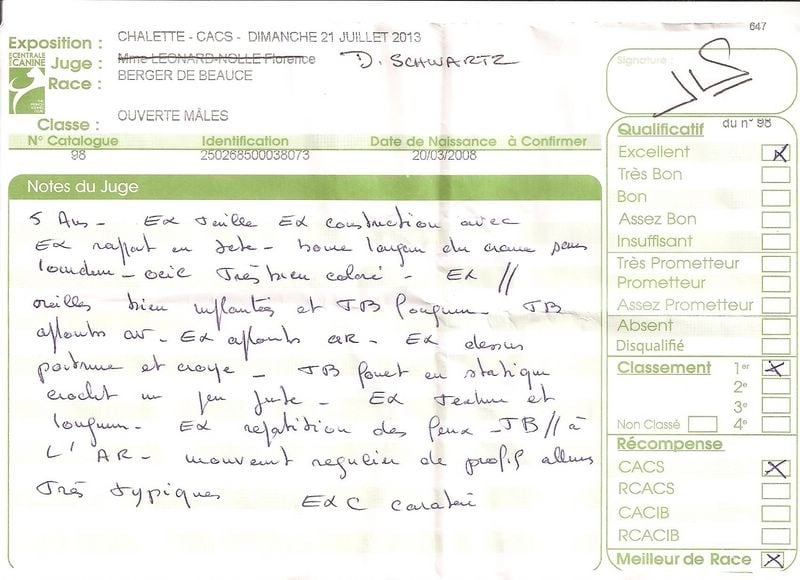 647
Exposition : CHALETTE - CACS - DIMANCHE 21 JUILLET 2013
CENTRALE CANINE
Juge : Mme LEONARD-NOLLE Florence D. SCHWARTZ
Race : BERGER DE BEAUCE
Classe : OUVERTE MÂLES
N° Catalogue Identification Date de Naissance à Confirmer
98 250268500038073 20/03/2008
Notes du Juge
5 Ans - Ex Taille Ex construction avec
Ex rapport en tete - bonne largeur du crane sans
lourdeur - oeil Très bien coloré - Ex //
oreilles bien implantés et TB longueur - TB
aplombs av - Ex aplombs aR - Ex dessus
poitrine et croupe - TB fouet en statique
crochet un peu juste - Ex Texture et
longueur - Ex repatition des feux - TB // à
L'AR - mouvement regulier de profil allures
Très typiques ExC caractère
Signature :
Qualificatif du n° 98
Excellent X
Très Bon
Bon
Assez Bon
Insuffisant
Très Prometteur
Prometteur
Assez Prometteur
Absent
Disqualifié
Classement 1er X
2e
3e
Non Classé 4e
Récompense
CACS X
RCACS
CACIB
RCACIB
Meilleur de Race X